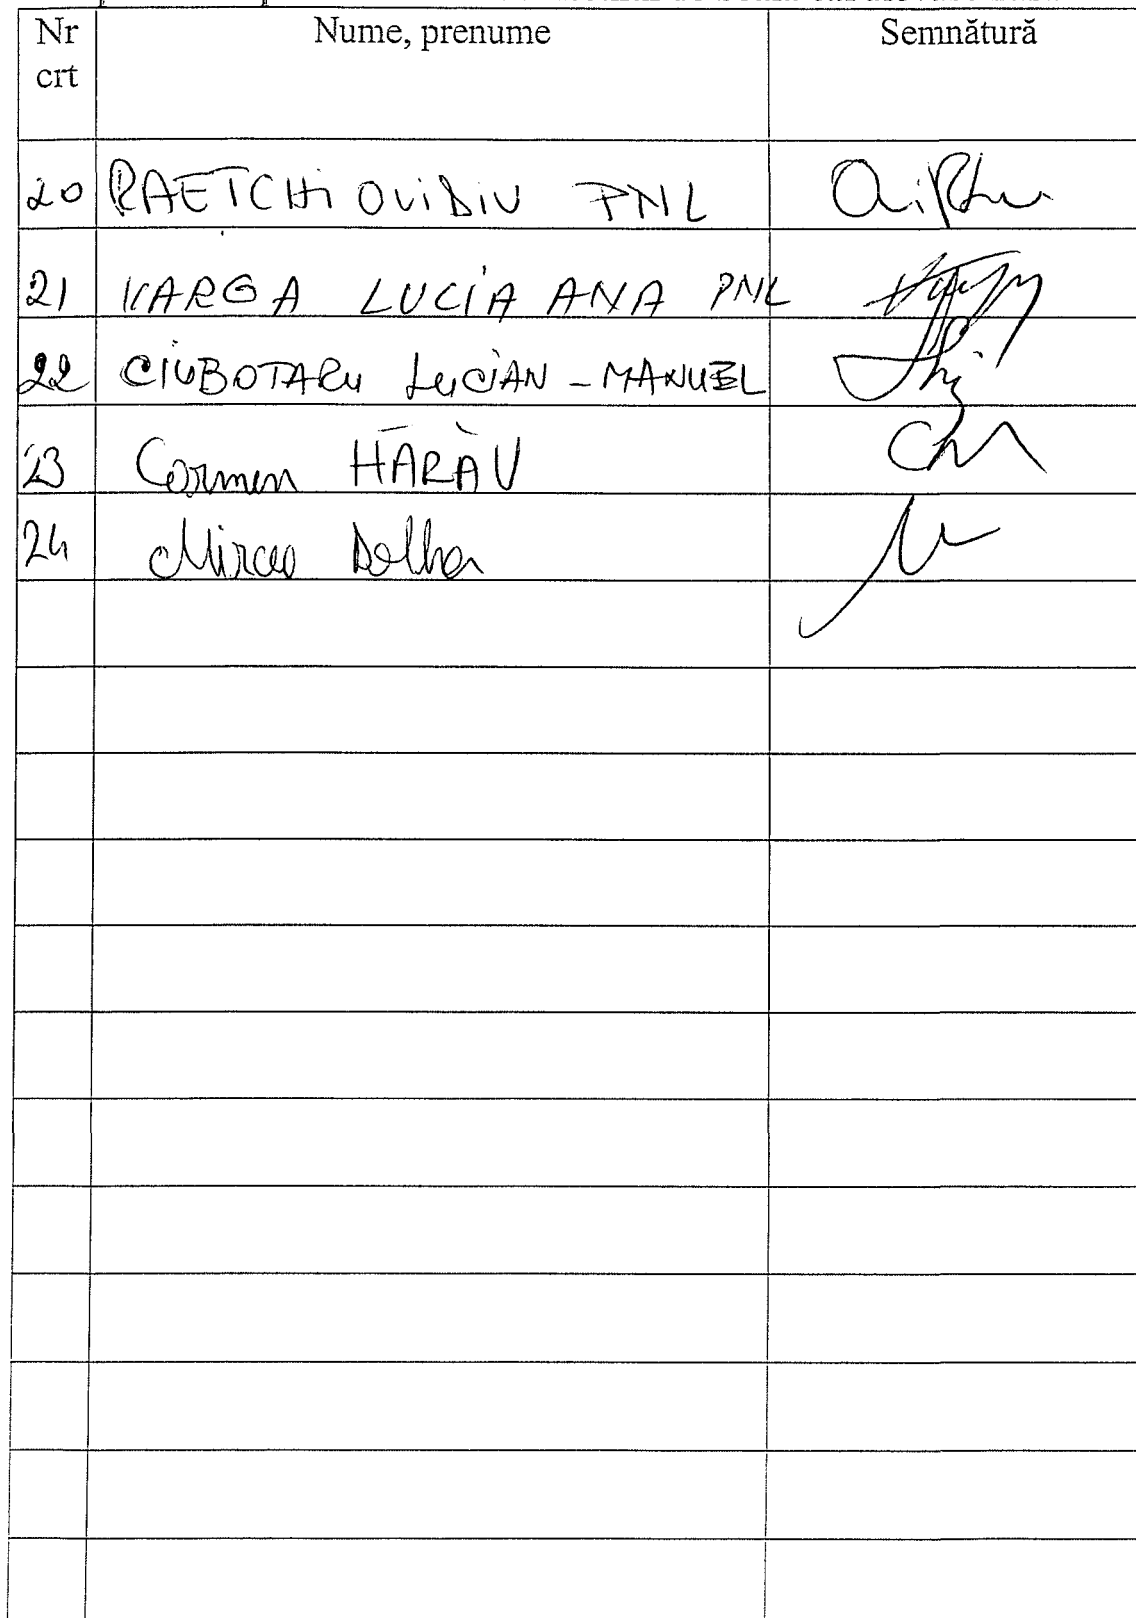 Nr crt Nume, prenume Semnătură
20 RAETCHi OViDiU PNL
21 VARGA LUCiA ANA PNL
22 CIUBOTARu LuCiAN - MANUEL
23 Carmen HĂRĂU
24 Mircea Dolha